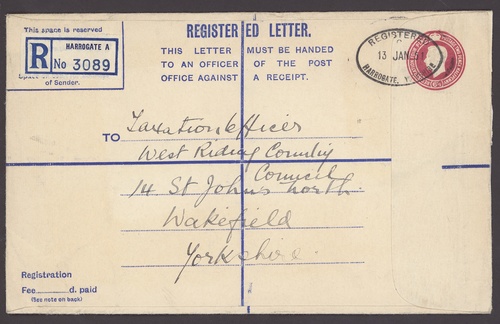 This space is reserved
REGISTERED LETTER.
R HARROGATE A
No 3089
of Sender.
THIS LETTER MUST BE HANDED
TO AN OFFICER OF THE POST
OFFICE AGAINST A RECEIPT.
REGISTERED
13 JAN 51
HARROGATE,
TO
Taxation Officer
West Riding County
Council
14 St Johns North
Wakefield
Yorkshire.
Registration
Fee d. paid
(See note on back)